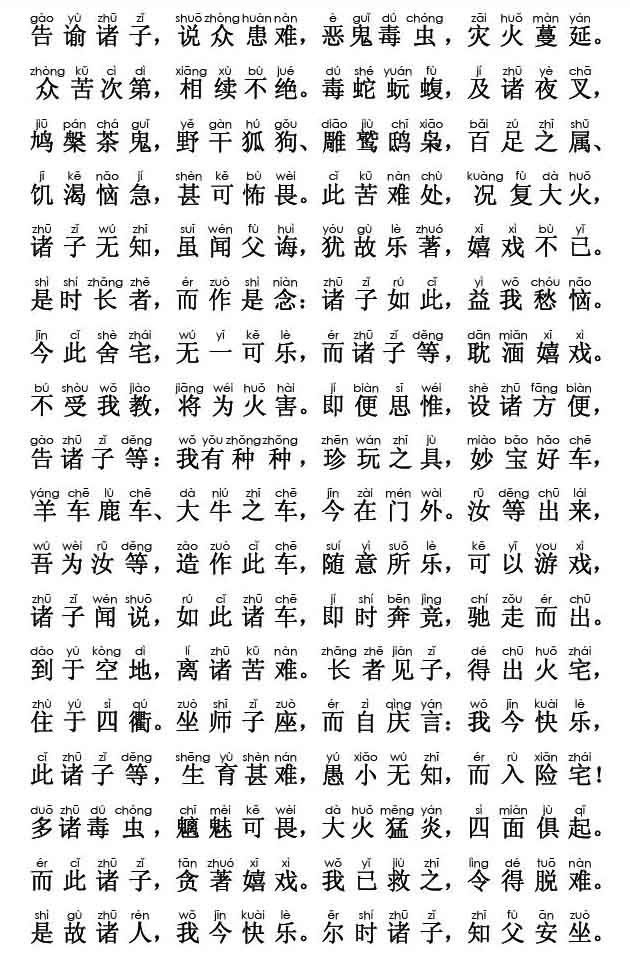 gào yù zhū zǐ shuō zhòng huàn nàn è guǐ dú chóng zāi huǒ màn yán
告谕诸子，说众患难，恶鬼毒虫，灾火蔓延。
zhòng kǔ cì dì xiāng xù bù jué dú shé yuán fù jí zhū yè chā
众苦次第，相续不绝。毒蛇蚖蝮，及诸夜叉，
jiū pán chá guǐ yě gàn hú gǒu diāo jiù chī xiāo bǎi zú zhī shǔ
鸠槃茶鬼，野干狐狗、雕鹫鸱枭，百足之属、
jī kě nǎo jí shèn kě bù wèi cǐ kǔ nàn chù kuàng fù dà huǒ
饥渴恼急，甚可怖畏。此苦难处，况复大火，
zhū zǐ wú zhī suī wén fù huì yóu gù lè zhuó xī xì bù yǐ
诸子无知，虽闻父诲，犹故乐著，嬉戏不已。
shì shí zhǎng zhě ér zuò shì niàn zhū zǐ rú cǐ yì wǒ chóu nǎo
是时长者，而作是念：诸子如此，益我愁恼。
jīn cǐ shè zhái wú yī kě lè ér zhū zǐ děng dān miǎn xī xì
今此舍宅，无一可乐，而诸子等，耽湎嬉戏。
bú shòu wǒ jiào jiāng wéi huǒ hài jí biàn sī wéi shè zhū fāng biàn
不受我教，将为火害。即便思惟，设诸方便，
gào zhū zǐ děng wǒ yǒu zhǒng zhǒng zhēn wán zhī jù miào bǎo hǎo chē
告诸子等：我有种种，珍玩之具，妙宝好车，
yáng chē lù chē dà niú zhī chē jīn zài mén wài rǔ děng chū lái
羊车鹿车、大牛之车，今在门外。汝等出来，
wú wèi rǔ děng zào zuò cǐ chē suí yì suǒ lè kě yǐ yóu xì
吾为汝等，造作此车，随意所乐，可以游戏，
zhū zǐ wén shuō rú cǐ zhū chē jí shí bēn jìng chí zǒu ér chū
诸子闻说，如此诸车，即时奔竞，驰走而出。
dào yú kòng dì lí zhū kǔ nàn zhǎng zhě jiàn zǐ dé chū huǒ zhái
到于空地，离诸苦难。长者见子，得出火宅，
zhù yú sì qú zuò shī zǐ zuò ér zì qìng yán wǒ jīn kuài lè
住于四衢。坐师子座，而自庆言：我今快乐，
cǐ zhū zǐ děng shēng yù shèn nán yú xiǎo wú zhī ér rù xiǎn zhái
此诸子等，生育甚难，愚小无知，而入险宅！
duō zhū dú chóng chī mèi kě wèi dà huǒ měng yán sì miàn jù qǐ
多诸毒虫，魑魅可畏，大火猛炎，四面俱起。
ér cǐ zhū zǐ tān zhuó xī xì wǒ yǐ jiù zhī lìng dé tuō nàn
而此诸子，贪著嬉戏。我已救之，令得脱难。
shì gù zhū rén wǒ jīn kuài lè ěr shí zhū zǐ zhī fù ān zuò
是故诸人，我今快乐。尔时诸子，知父安坐。